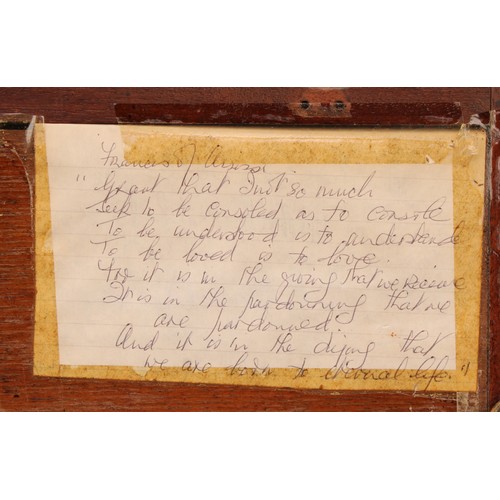 Francis of Assisi
"Grant that I not so much
Seek to be consoled as to console
To be understood is to understand
To be loved is to love.
For it is in the giving that we receive
It is in the pardonning that we
are pardonned.
And it is in the dying that
we are born to eternal life."